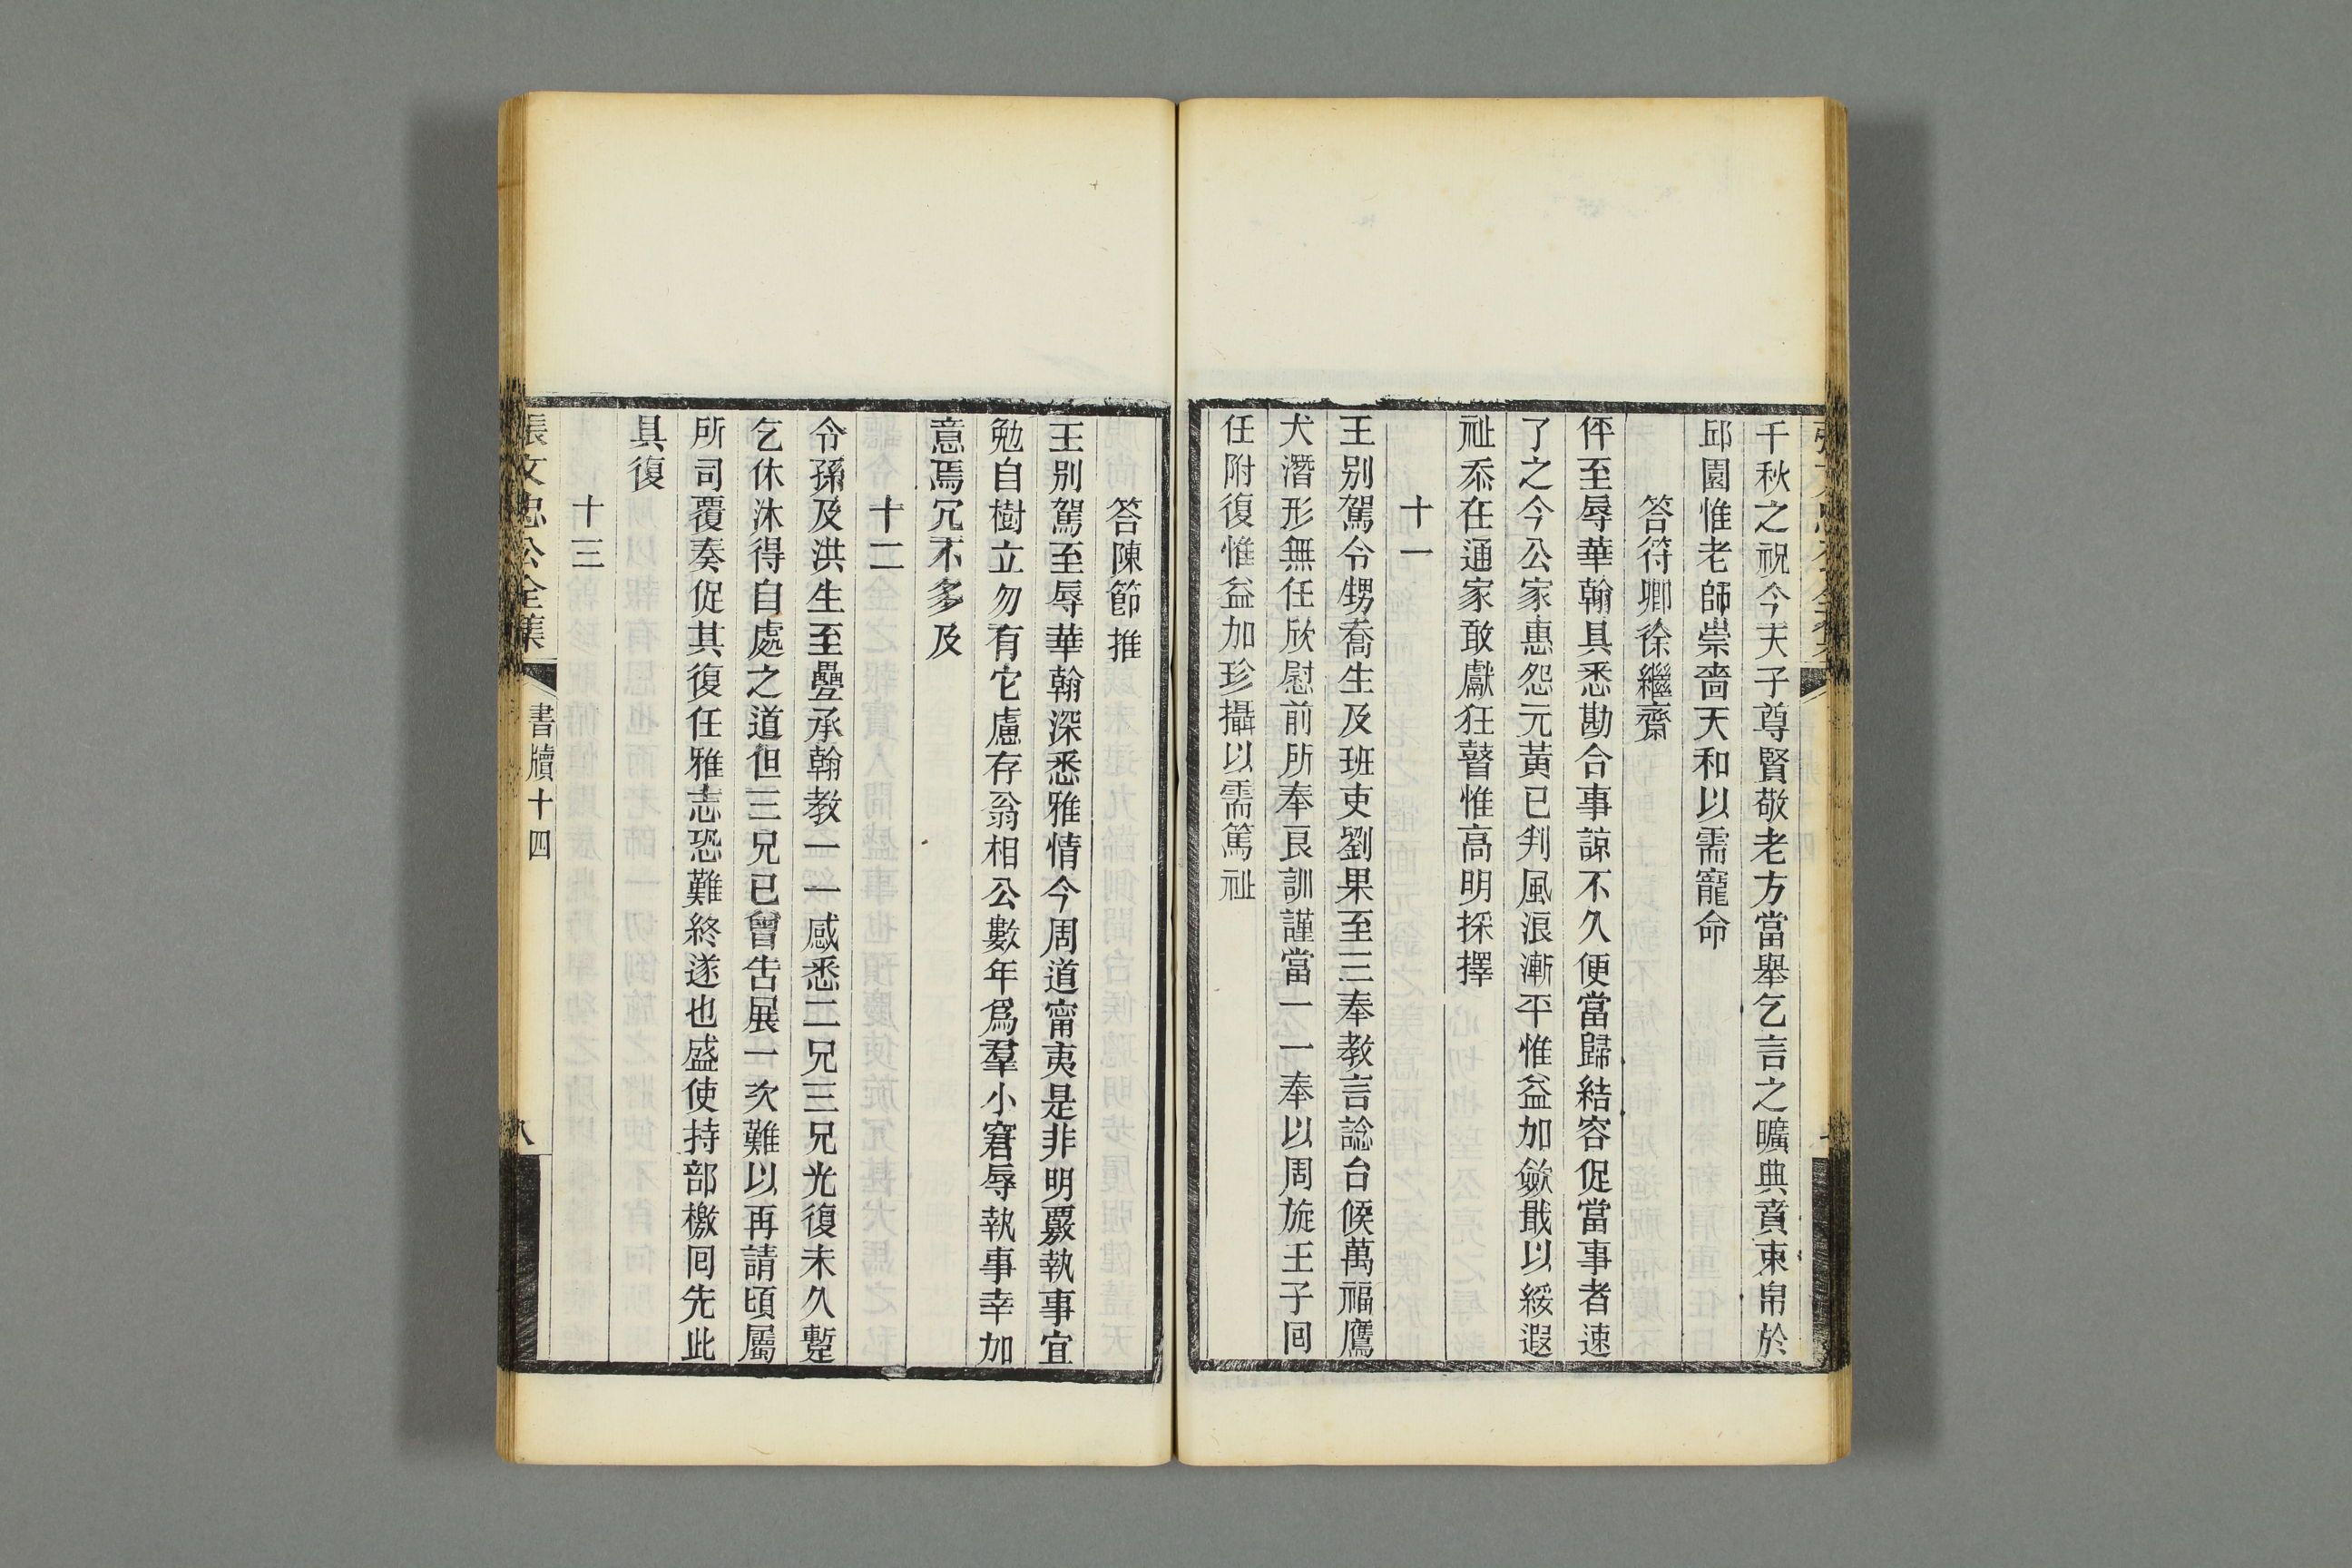 千秋之祝今天子尊賢敬老方當舉乞言之曠典賁束帛於
邱園惟老師崇嗇天和以需寵命
答符卿徐繼齋
伻至辱華翰具悉勘合事諒不久便當歸結容促當事者速
了之今公家惠怨元黃已判風浪漸平惟益加歛戢以綏遐
祉忝在通家敢獻狂瞽惟高明採擇
十一
王別駕令甥喬生及班吏劉果至三奉教言諗台候萬福鷹
犬潛形無任欣慰前所奉良訓謹當一一奉以周旋王子囘
任附復惟益加珍攝以需篤祉
答陳節推
王別駕至辱華翰深悉雅情今周道甯夷是非明覈執事宜
勉自樹立勿有它慮存翁相公數年爲羣小窘辱執事幸加
意焉冗不多及
十二
令孫及洪生至疊承翰教一一感悉二兄三兄光復未久蹔
乞休沐得自處之道但三兄已曾告展一次難以再請頃屬
所司覆奏促其復任雅志恐難終遂也盛使持部檄囘先此
具復
十三
張文忠公全集
書牘十四
八